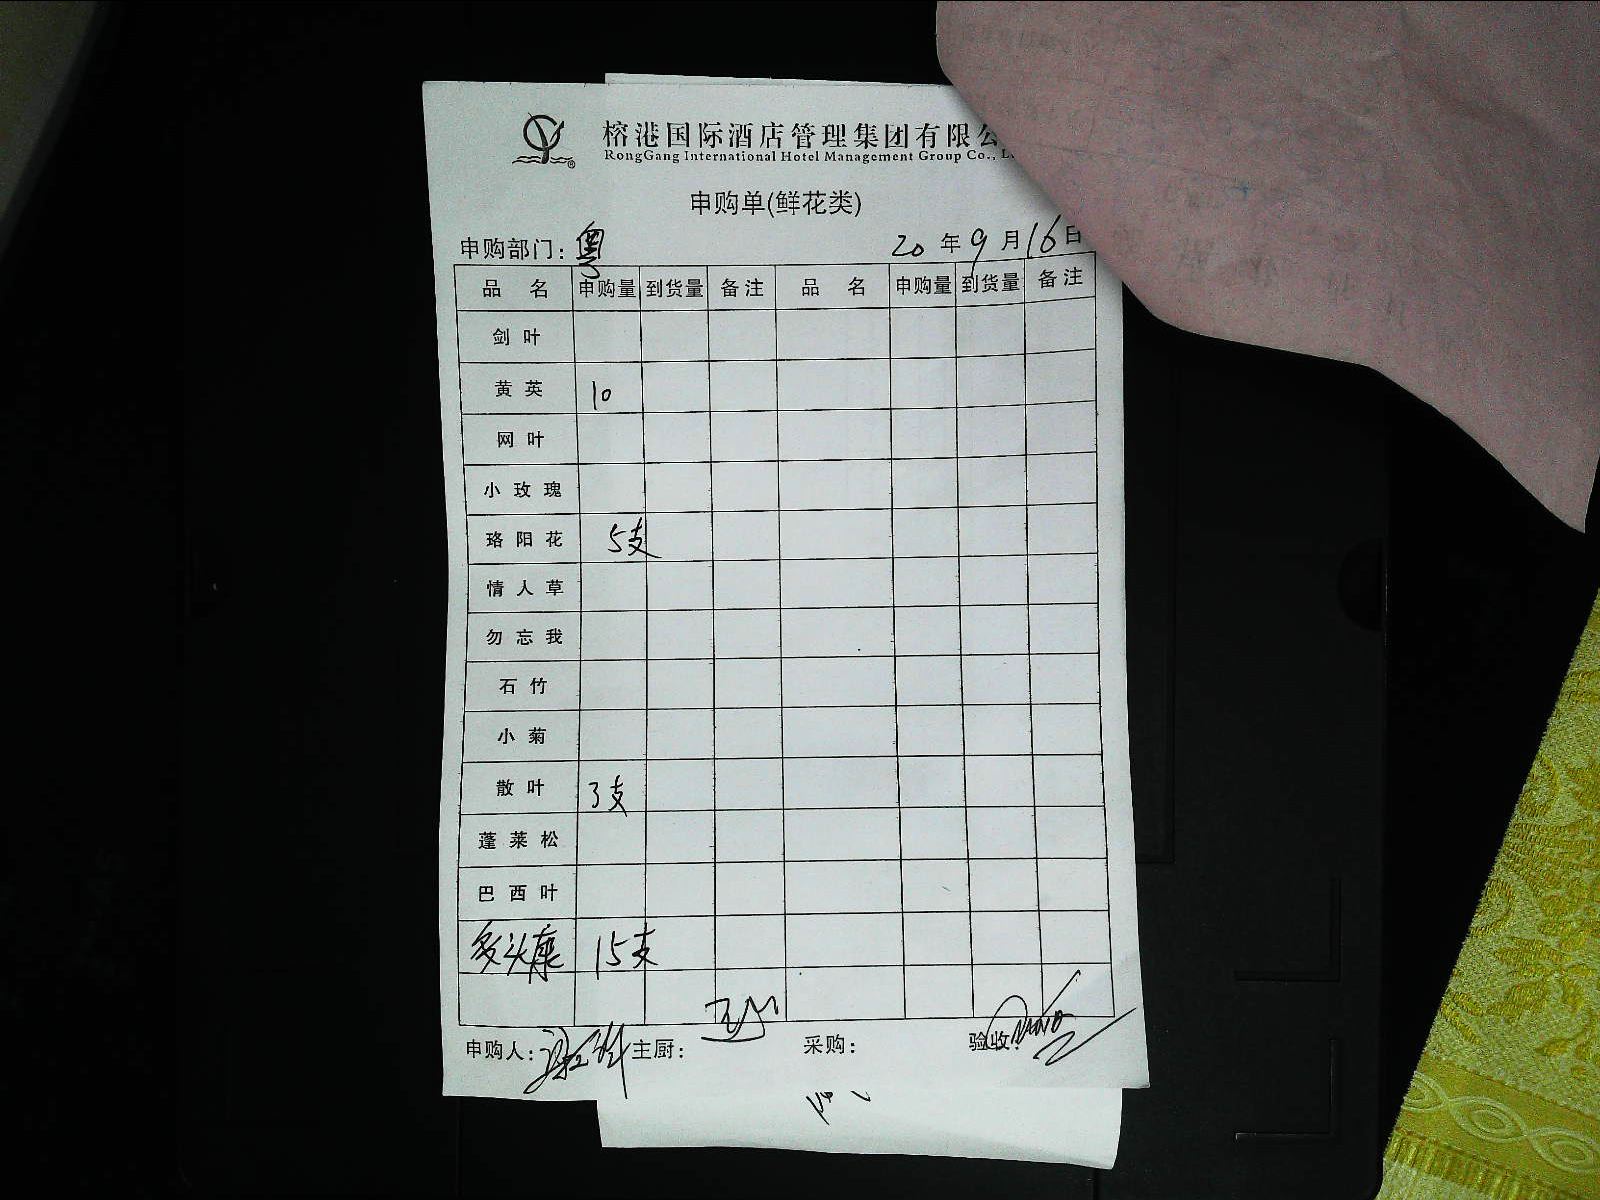 榕港国际酒店管理集团有限公
RongGang International Hotel Management Group Co.,
申购单(鲜花类)
申购部门：粤 20 年 9 月 16 日
品 名 申购量 到货量 备注 品 名 申购量 到货量 备注
剑叶
黄英 10
网叶
小玫瑰
珞阳花 5支
情人草
勿忘我
石竹
小菊
散叶 3支
蓬莱松
巴西叶
多头康 15支
申购人： 主厨： 采购： 验收：